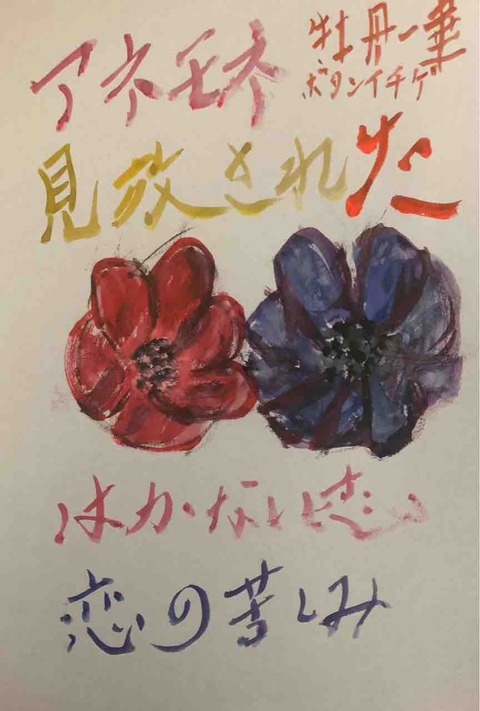 アネモネ
牡丹一華
ボタンイチゲ
見放され
はかない恋
恋の苦しみ